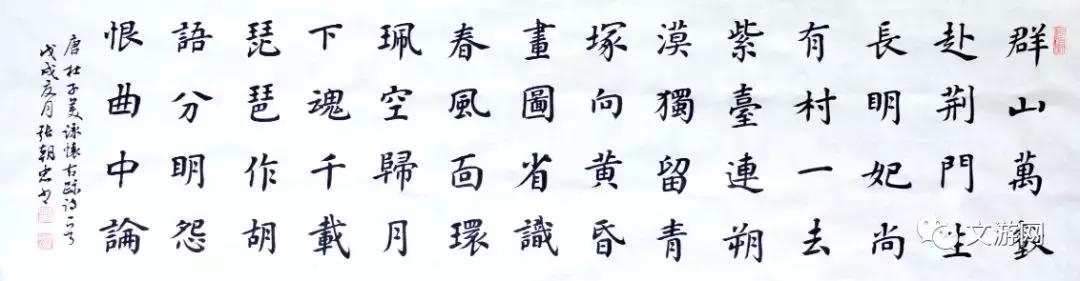 群山萬壑
赴荆門生
長明妃尚
有村一去
紫臺連朔
漠獨留青
塚向黄昏
畫圖省識
春風面環
珮空歸月
下魂千載
琵琶作胡
語分明怨
恨曲中論
唐杜子美詠懷古跡詩一首
戊戌夏月張朝忠书
文游网